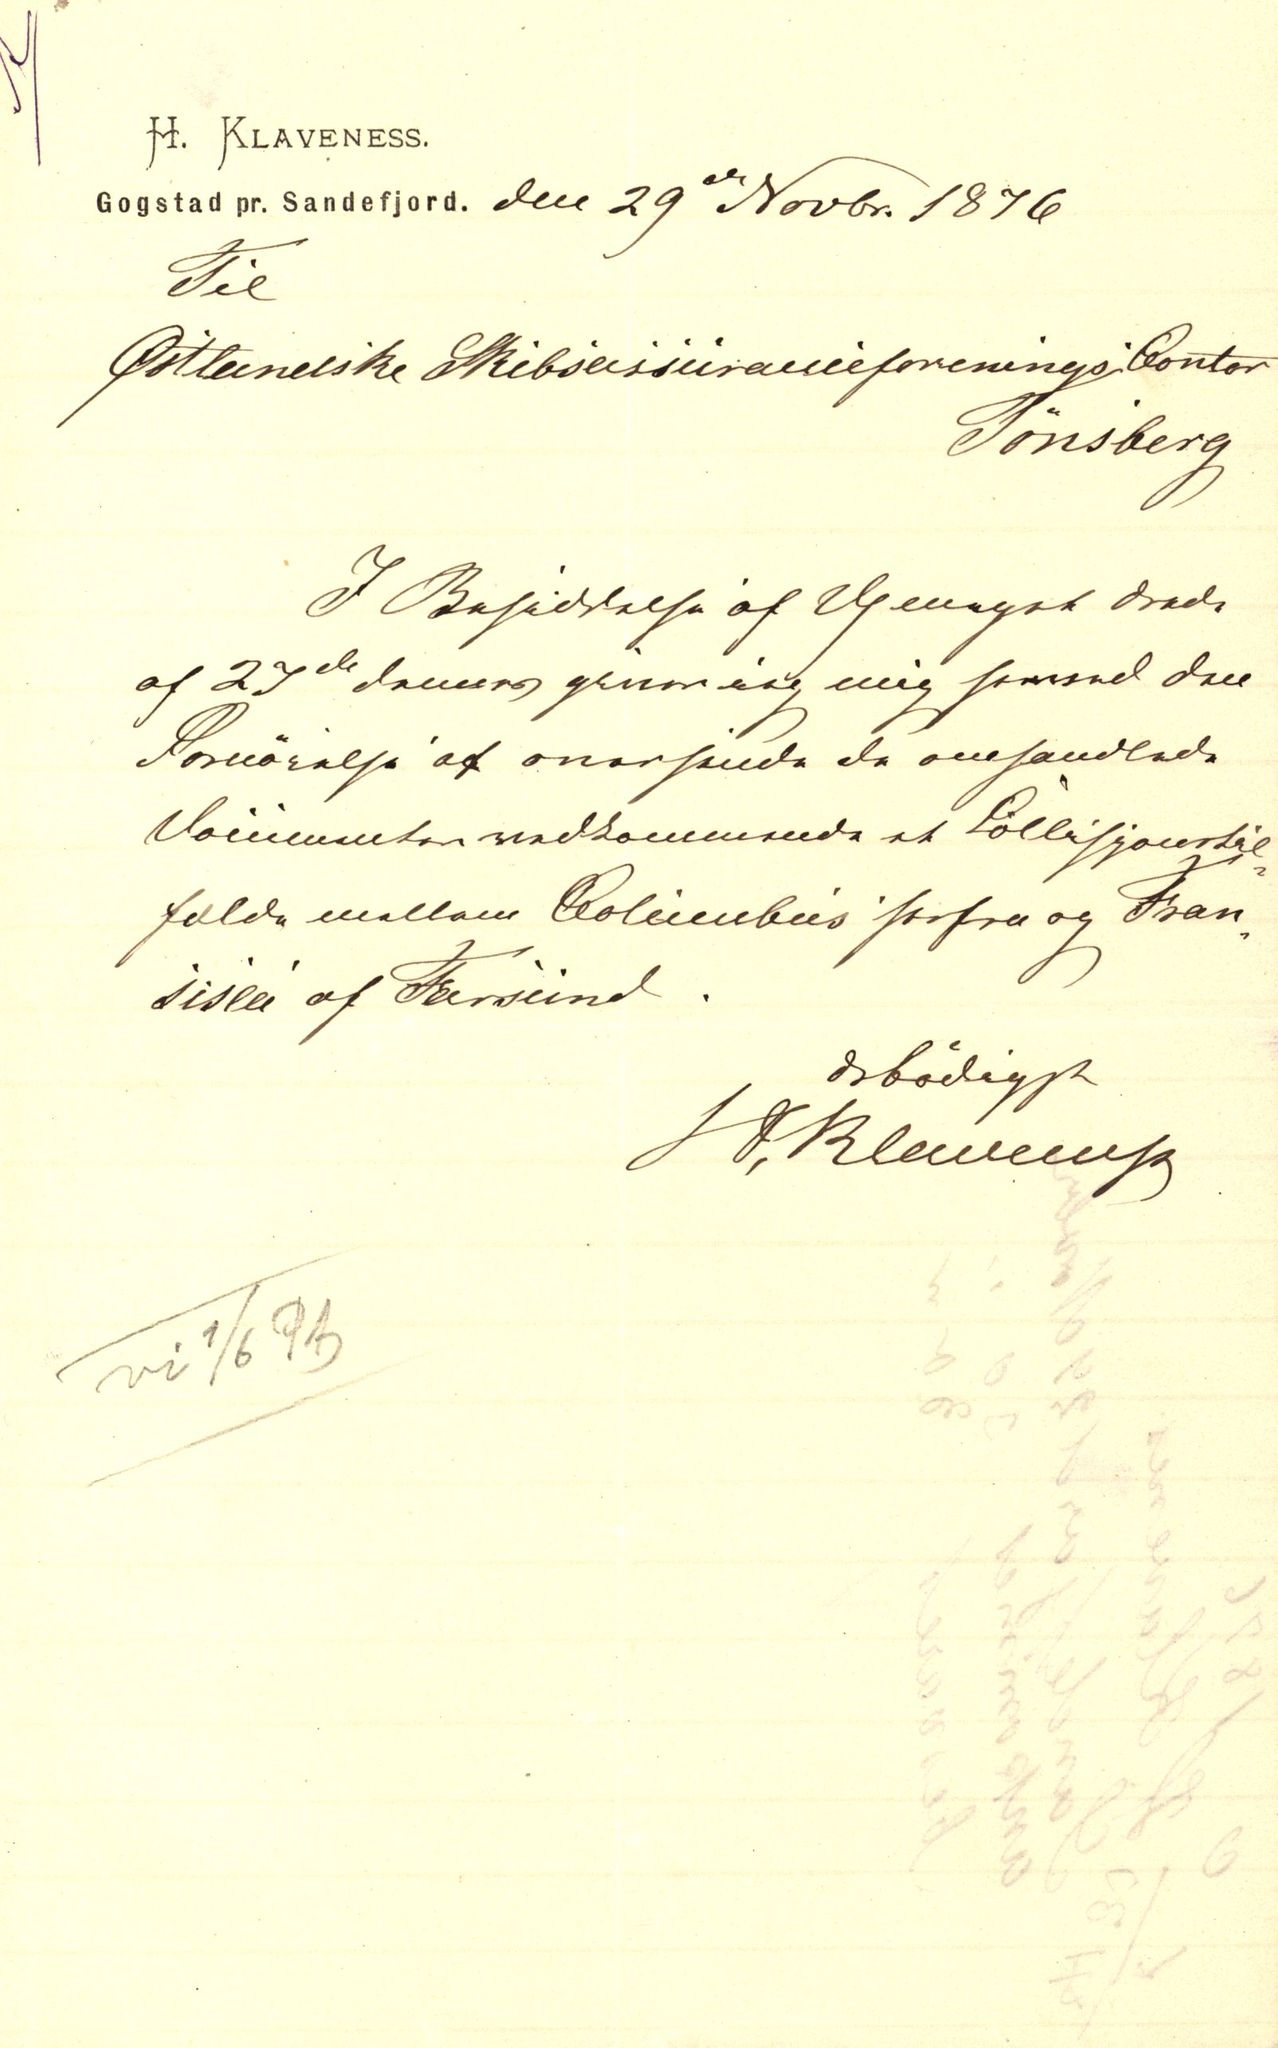 H. KLAVENESS.
Gogstad pr. Sandefjord. den 29de Novbr. 1876
Til
Østlandske Skibsassuranceforenings Contor
Tönsberg
I Besiddelse af
af 27de dennes giver jeg mig herved den
Fornöielse at oversende de omhandlede
Documenter vedkommende et Collisjonstil-
fælde mellem Columbus herfra og Fran-
siska af Farsund.
Ærbödigst
H. Klaveness
vi 1/6